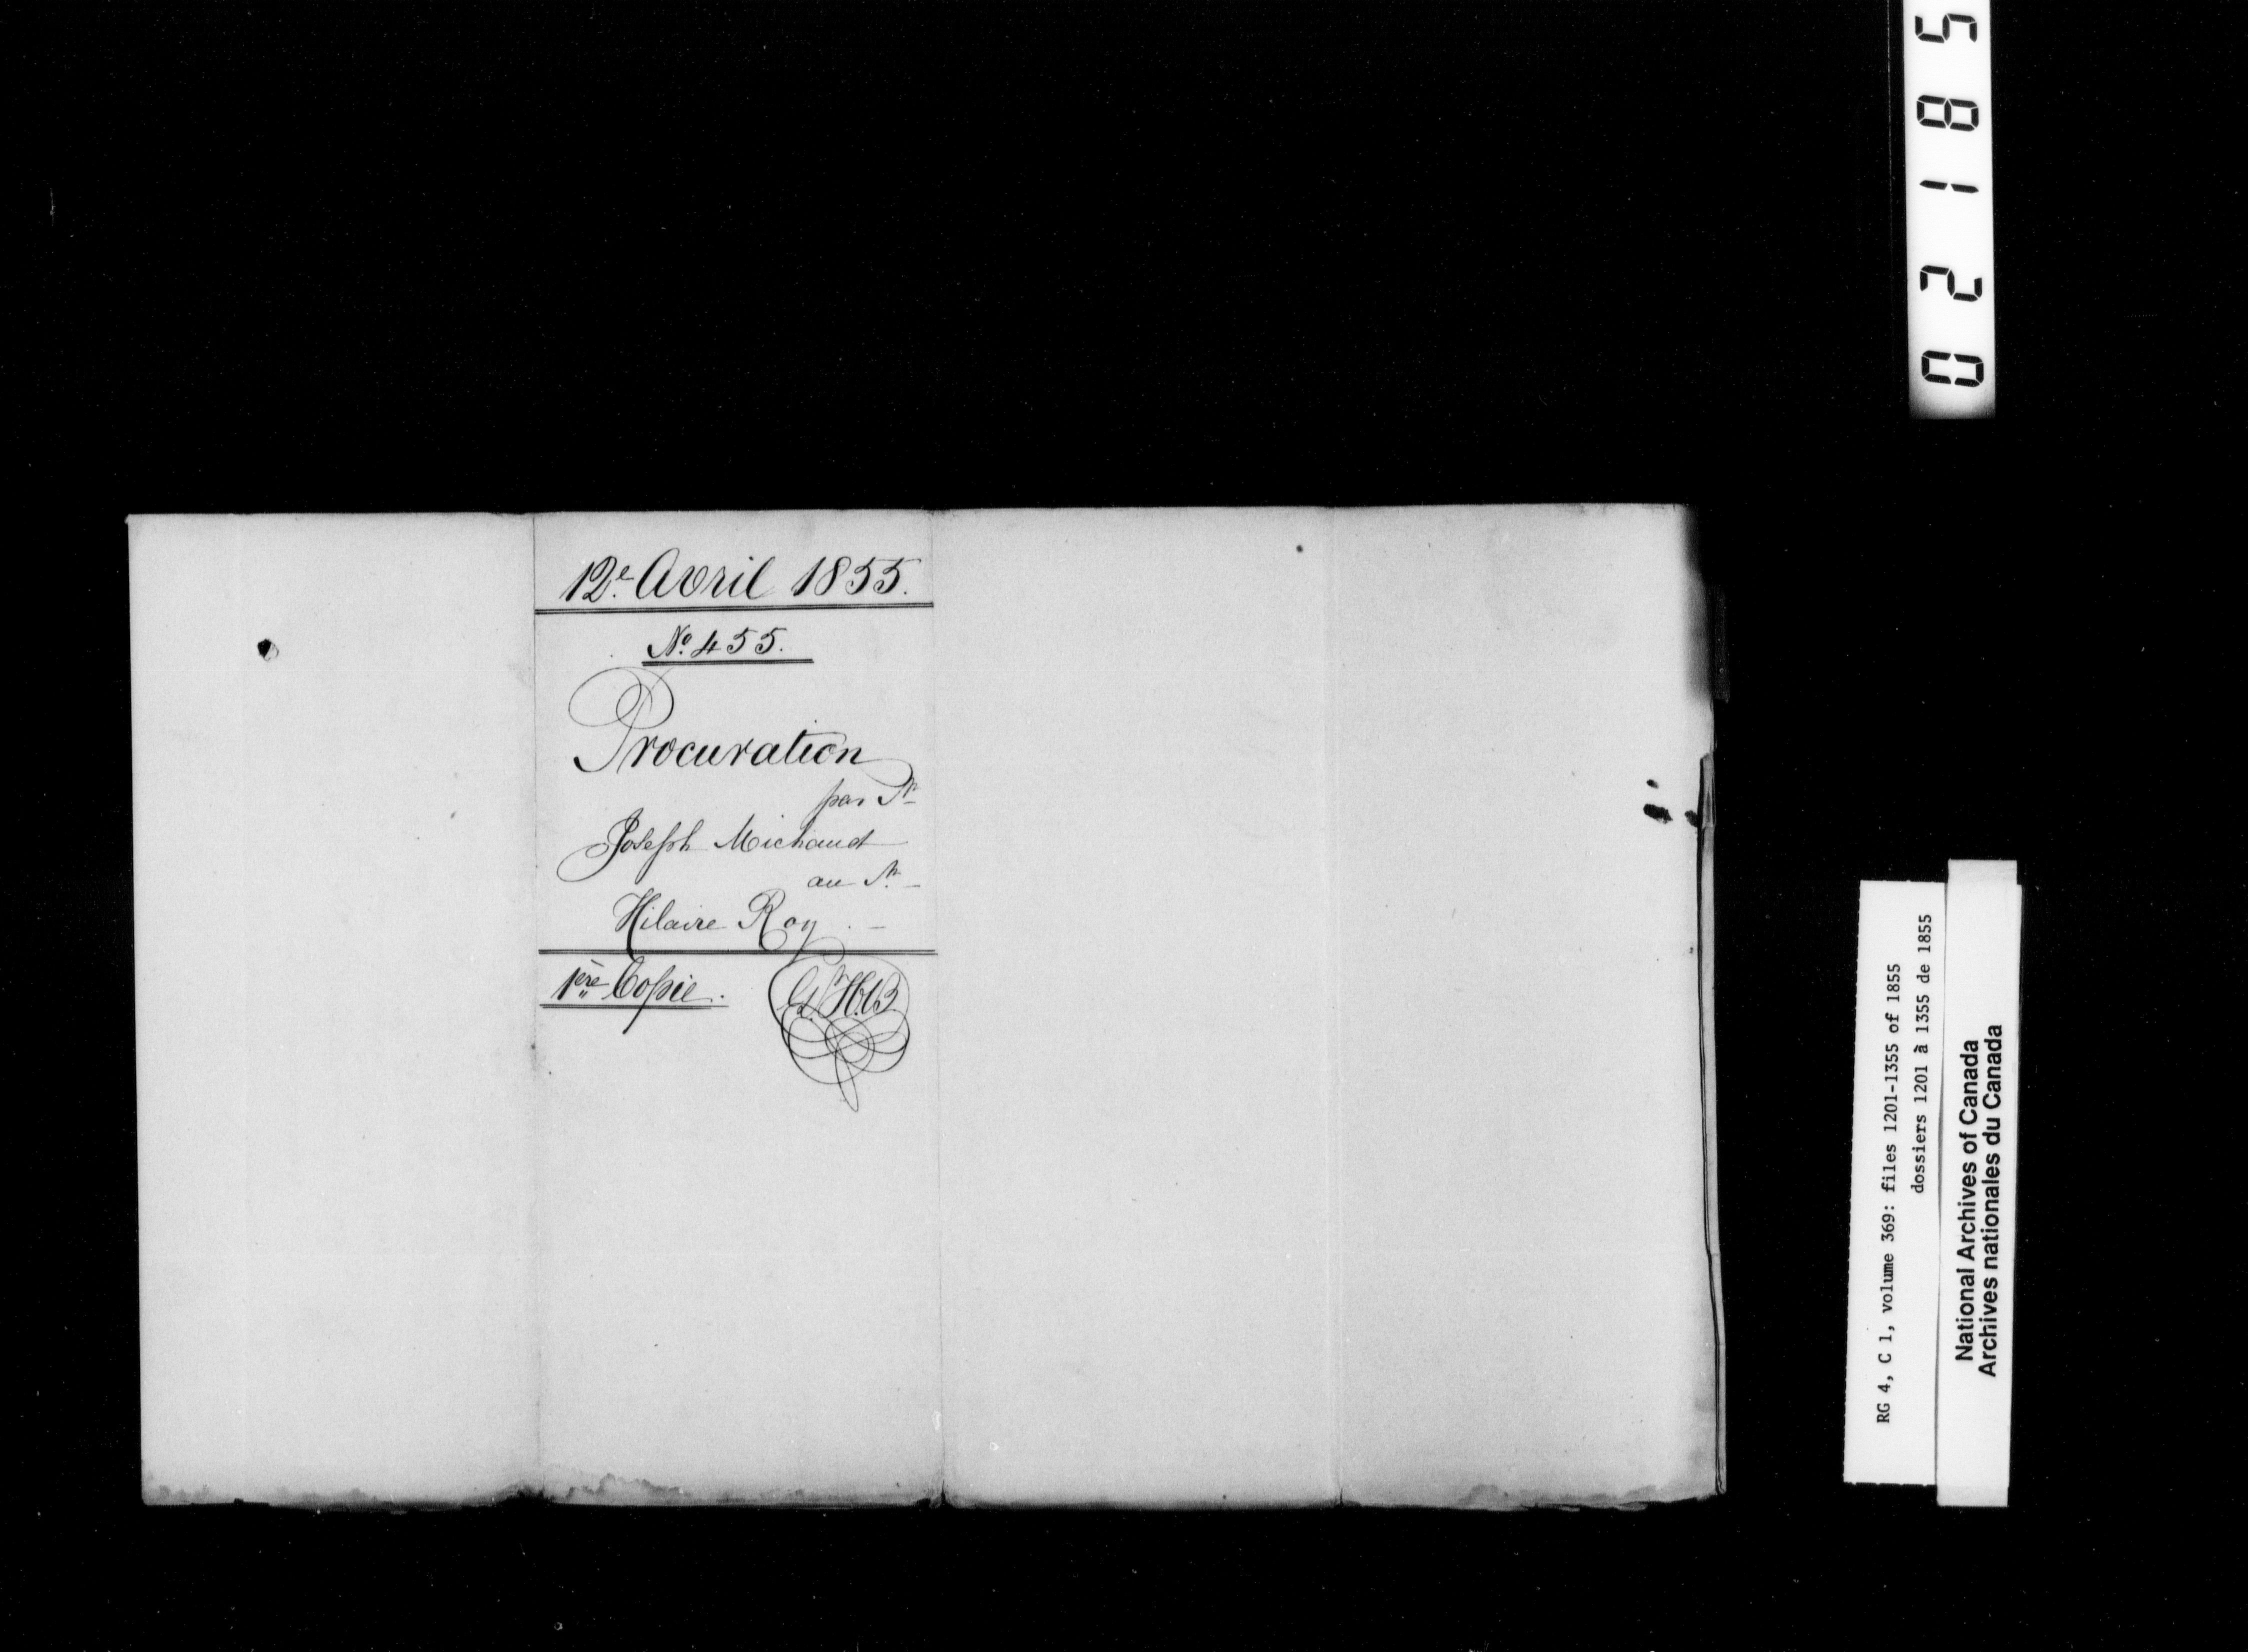 12.e Avril 1855.
No. 455.
Procuration
par Sr
Joseph Michaud
au Sr.
Hilaire Roy.
1ère Copie.
02185
RG 4, C 1, volume 369: files 1201-1355 of 1855
dossiers 1201 à 1355 de 1855
National Archives of Canada
Archives nationales du Canada